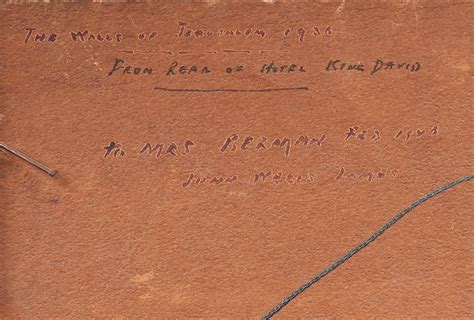 THE WALLS OF JERUSALEM
FROM REAR OF HOTEL KING DAVID
TO MRS BERMAN FEB
JOHN WELLS JAMES